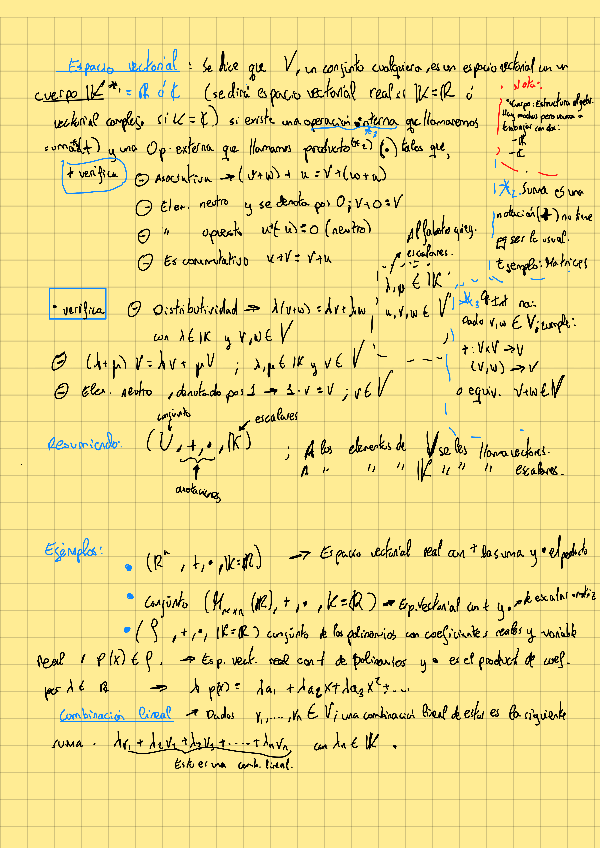 Espacio vectorial : Se dice que V, un conjunto cualquiera, es un espacio vectorial con un
cuerpo K*₁ = R ó C (se dirá espacio vectorial real si K=R ó
vectorial complejo si K=C) si existe una operación interna que llamaremos
suma (+) y una Op. externa que llamamos producto(*2) (·) tales que,
Nota:
*Cuerpo: Estructura algebr.
Hay muchos pero vamos a
trabajar con dos:
- R
- C
+ verifica
⊖ Asociativa → (v+w) + u = v+(w+u)
⊖ Elem. neutro y se denota por 0; v+0=v
⊖ " opuesto
⊖ Es conmutativo u+v = v+u
*2 Suma es una
notación (+) no tiene
q ser la usual.
Ejemplo: Matrices
Alfabeto grieg.
escalares.
λ, μ ∈ K
u, v, w ∈ V
· verifica
⊖ Distributividad → λ(v+w) = λv+λw
con λ∈K y v,w∈V
⊖ (λ+μ) v = λv + μv ; λ,μ∈K y v∈V
⊖ Elem. neutro, denotado por 1 → 1·v = v ; v∈V
dado v,w ∈ V; cumple:
+: V×V → V
(v,w) → V
o equiv. v+w∈V
Resumiendo: (V, +, ·, K) ; A los elementos de V se les llama vectores.
A " " " K " " " escalares.
conjunto
escalares
Ejemplos:
• (Rⁿ, +, ·, K=R) → Espacio vectorial real con + la suma y · el producto
• Conjunto (M_{m×n} (R), +, ·, K=R) → Esp. Vectorial con + y ·
• (P, +, ·, K=R) conjunto de los polinomios con coeficientes reales y variable
real ; p(x) ∈ P. → Esp. vect. real con + de polinomios y · es el product de coef.
por λ ∈ R → λ p(x) = λa₁ + λa₂x + λa₃x² + ...
Combinación lineal → Dados v₁, ..., vₙ ∈ V; una combinación lineal de estos es la siguiente
suma. λv₁ + λ₂v₂ + λ₃v₃ + .... + λₙvₙ con λₙ ∈ K.
Esto es una comb. lineal.